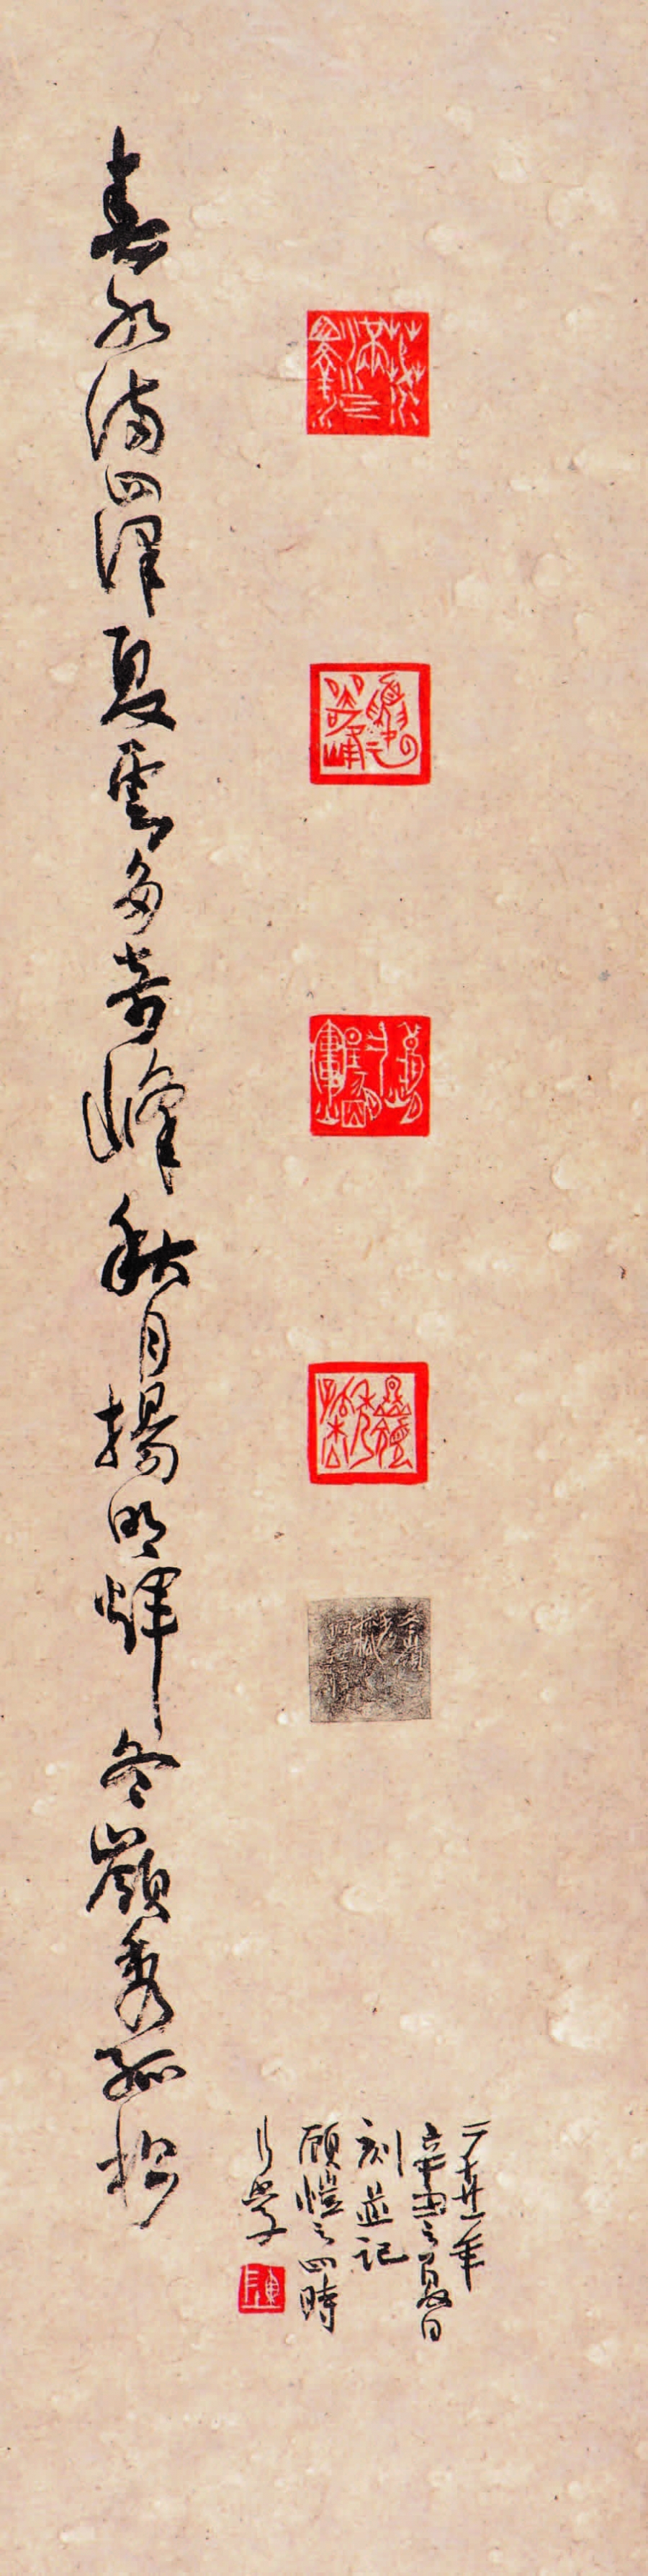 春水满四澤夏雲多奇峰秋月揚明煇冬嶺秀孤松
春水滿四澤
夏雲多奇峰
秋月揚明輝
冬嶺秀孤松
二〇廿一年
辛丑之夏日
刻並記
顧愷之四時